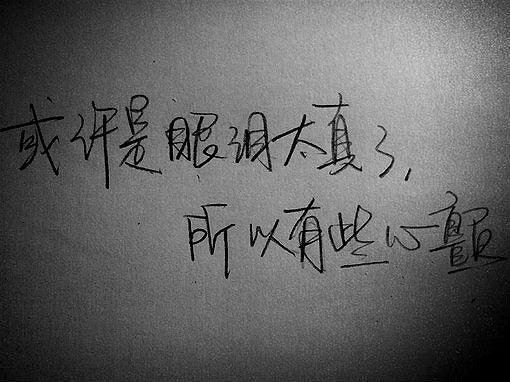 或许是眼泪太真了,
所以有些心